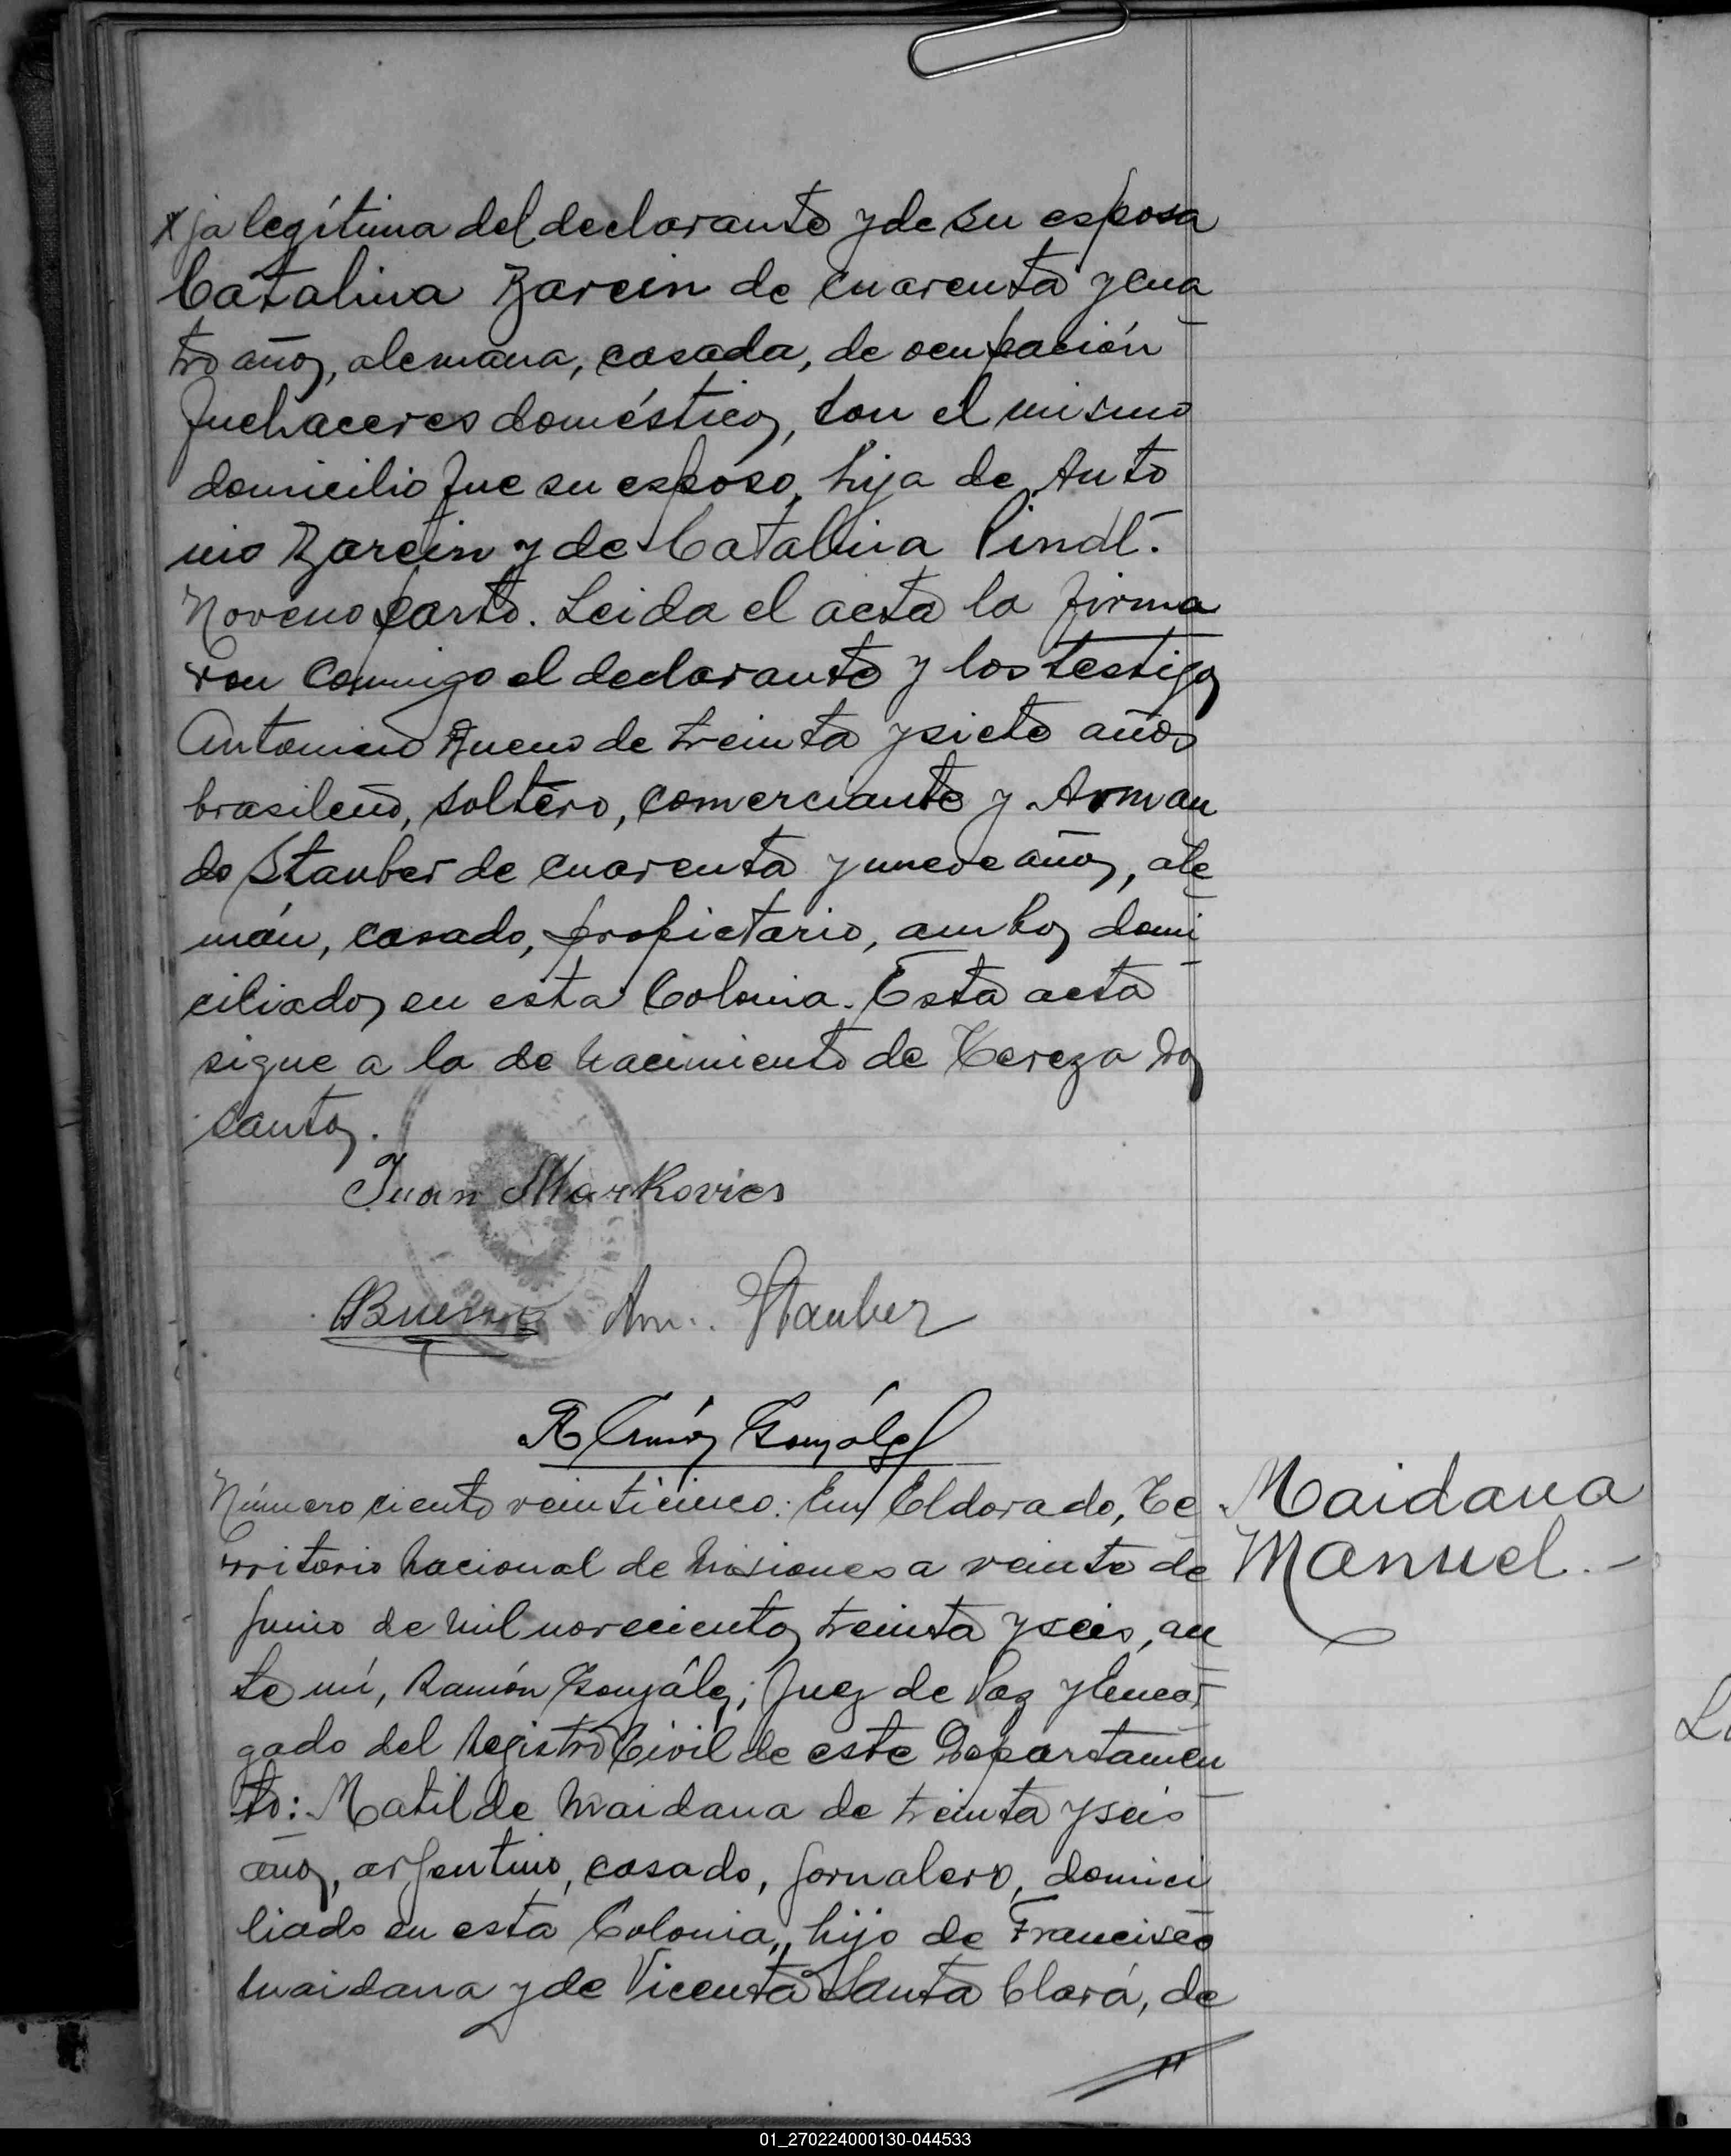 ja legítima del declarante y de su esposa
Catalina Zarein de cuarenta y cua
tro años, alemana, casada, de ocupación
quehaceres domésticos, con el mismo
domicilio que su esposo, hija de Anto
nio Zarein y de Catalina Pindl.
Noveno parto. Leida el acta la firma
ron conmigo el declarante y los testigos
Antonino Bueno de treinta y siete años
brasileño, soltero, comerciante y Arman
do Stauber de cuarenta y nueve años, ale
mán, casado, propietario, ambos domi
ciliados en esta Colonia. Esta acta
sigue a la de nacimiento de Tereza dos
santos.
Juan Markovics
ABueno Arm. Stauber
Ramón González
Número ciento veinticinco: En Eldorado, Te
rritorio Nacional de Misiones a veinte de
Junio de mil novecientos treinta y seis, an
te mí, Ramón González; Juez de Paz y Encar
gado del Registro Civil de este Departamen
to: Matilde Maidana de treinta y seis
años, argentino, casado, jornalero, domici
liado en esta Colonia, hijo de Francisco
Maidana y de Vicenta Santa Clara, de
Maidana
Manuel.-
01_270224000130-044533